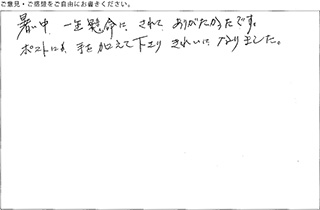 ご意見・ご感想をご自由にお書きください。
暑い中 一生懸命に されて ありがたかったです。
ポストにも 手を加えて下さり きれいに なりました。